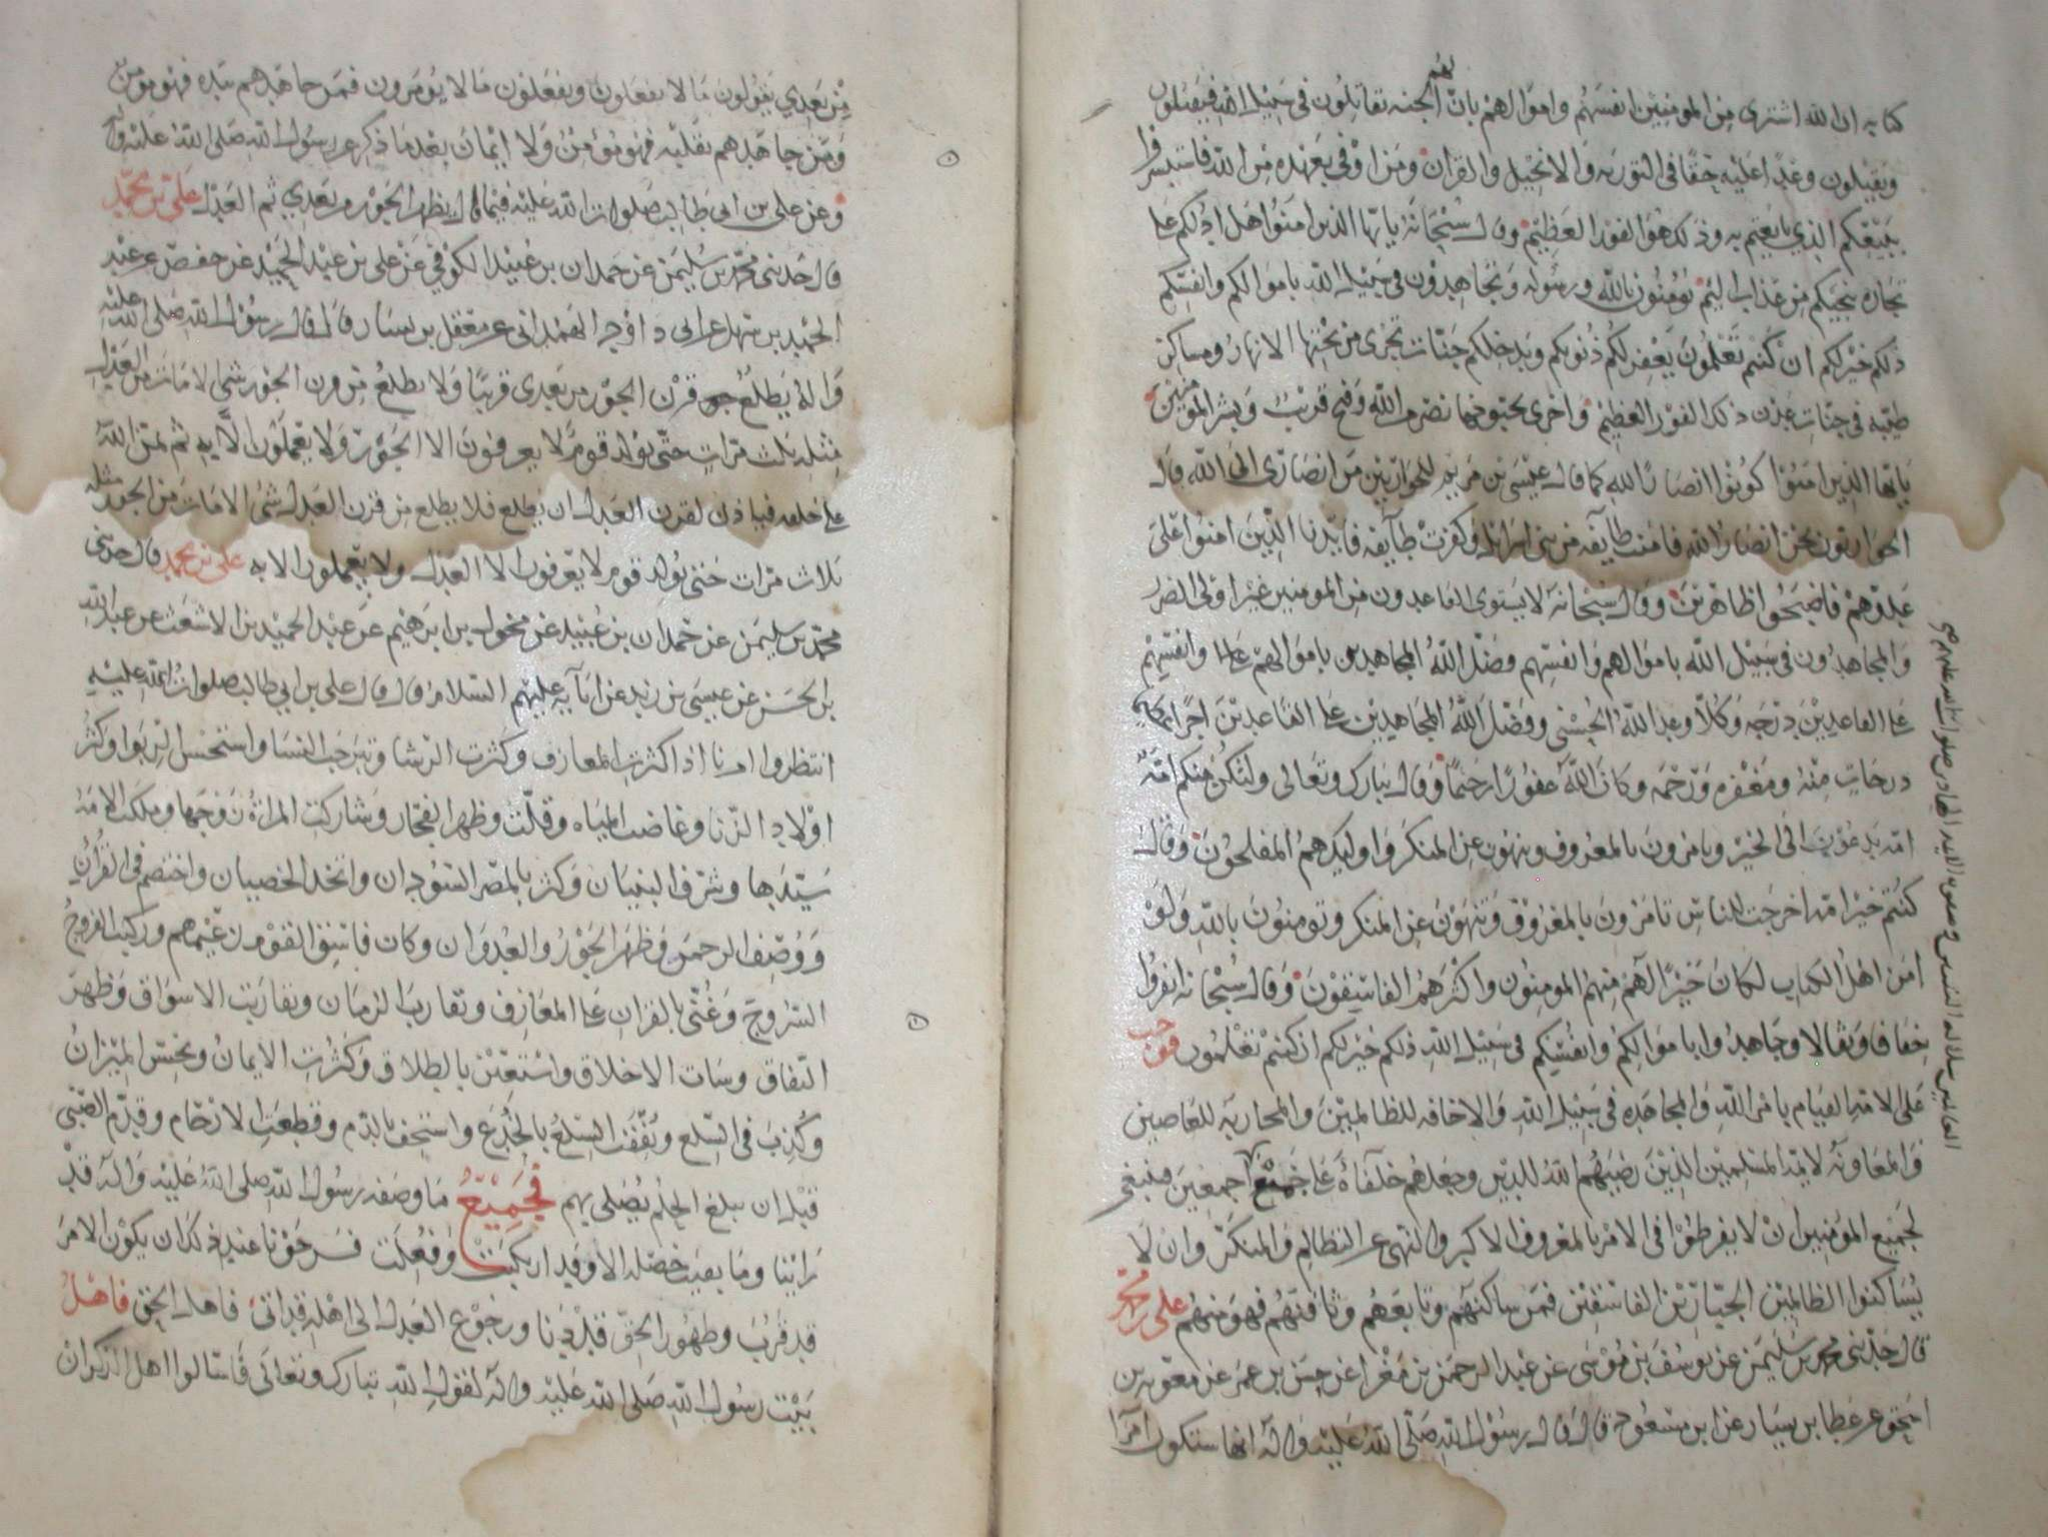 كتابه ان الله اشترى من المومنين انفسهم واموالهم بان لهم الجنه يقاتلون في سبيل الله فيقتلون
ويقتلون وعدا عليه حقا في التوريه والانجيل والقران ومن اوفى بعهده من الله فاستبشروا
ببيعكم الذي بايعتم به وذلك هو الفوز العظيم وقال سبحانه يايها الذين امنوا هل ادلكم على
تجاره تنجيكم من عذاب اليم تومنون بالله ورسوله وتجاهدون في سبيل الله باموالكم وانفسكم
ذلكم خير لكم ان كنتم تعلمون يغفر لكم ذنوبكم ويدخلكم جنات تجري من تحتها الانهار ومساكن
طيبه في جنات عدن ذلك الفوز العظيم واخرى تحبونها نصر من الله وفتح قريب وبشر المومنين
يايها الذين امنوا كونوا انصارا لله كما قال عيسى بن مريم للحواريين من انصاري الى الله قال
الحواريون نحن انصار الله فامنت طآيفه من بني اسرائل وكفرت طآيفه فايدنا الذين امنوا على
عدوهم فاصبحوا ظاهرين وقال سبحانه لا يستوى القاعدون من المومنين غير اولى الضرر
والمجاهدون في سبيل الله باموالهم وانفسهم فضل الله المجاهدين باموالهم وانفسهم
على القاعدين درجه وكلا وعد الله الحسنى وفضل الله المجاهدين على القاعدين اجرا عظيما
درجات منه ومغفره ورحمه وكان الله غفورا رحيما وقال تبارك وتعالى ولتكن منكم امه
امه يدعون الى الخير ويامرون بالمعروف وينهون عن المنكر واوليك هم المفلحون وقال
كنتم خير امه اخرجت للناس تامرون بالمعروف وتنهون عن المنكر وتومنون بالله ولو
امن اهل الكتاب لكان خيرا لهم منهم المومنون واكثرهم الفاسقون وقال سبحانه انفروا
خفافا وثقالا وجاهدوا باموالكم وانفسكم في سبيل الله ذلكم خير لكم ان كنتم تعلمون فوجب
على الامه القيام بامر الله والمجاهده في سبيل الله والاخافه للظالمين والمحاربه للعاصين
والمعاونه لايمه المسلمين الذين رضيهم الله للدين وجعلهم خلفآء على جميع اجمعين فينبغي
لجميع المومنين ان لا يفرطوا في الامر بالمعروف الاكبر والنهي عن التظالم والمنكر وان لا
يساكنوا الظالمين الجبارين الفاسقين فمن ساكنهم وتابعهم فهو منهم علي بن محمد
قال حدثني محمد بن سليمن عن يوسف بن موسى عن عبد الرحمن بن مغرا عن حسن بن عمر عن معويه بن
اسحق عن عطا بن يسار عن ابن مسعود قال قال رسول الله صلى الله عليه واله انها ستكون امرآ
من بعدي يقولون ما لا يفعلون ويفعلون ما لا يومرون فمن جاهدهم بيده فهو مومن
ومن جاهدهم بقلبه فهو مومن ولا ايمان بعد ما ذكر رسول الله صلى الله عليه واله
وعن علي بن ابي طالب صلوات الله عليه فيما قال يظهر الجور من بعدي ثم العدل علي بن محمد
قال حدثني محمد بن سليمن عن حمدان بن عبيد الكوفي عن علي بن عبد الحميد عن حفص عن عبد
الحميد بن سهل عن ابي داود الهمداني عن معقل بن يسار قال قال رسول الله صلى الله عليه
واله يطلع قرن الجور من بعدي قريبا ولا يطلع من قرن الجور شي الا مات من العدل
مثله ثلث مرات حتى يولد قوم لا يعرفون الا الجور ولا يعملون الا به ثم يمن الله
على خلقه فياذن لقرن العدل ان يطلع فلا يطلع من قرن العدل شي الا مات من الجور مثله
ثلاث مرات حتى يولد قوم لا يعرفون الا العدل ولا يعملون الا به علي بن محمد قال حدثني
محمد بن سليمن عن حمدان بن عبيد عن مخول بن ابرهيم عن عبد الحميد بن الاشعث عن عبد الله
بن الحسن عن عيسى بن زيد عن ابآيه عليهم السلام قال قال علي بن ابي طالب صلوات الله عليه
انتظروا امرنا اذا كثرت المعازف وكثرت الرشا وتبرجت النسا واستحسن الربوا وكثر
اولاد الزنا وغاضت المياه وقلت وظهر الفجار وشاركت المراة زوجها وملكت الامه
سيدها وشرف البنيان وكثر بالمصر السودان واتخذ الخصيان واختصم في القران
ووصف الرحمن وظهر الجور والعدوان وكان فاسق القوم زعيمهم وركبت الفروج
السروج وغني بالقران على المعازف وتقارب الزمان وتقاربت الاسواق وظهر
النفاق وسات الاخلاق واستعين بالطلاق وكثرت الايمان وبخس الميزان
وكذب في السلع ونفقت السلع بالخدع واستخف بالدم وقطعت الارحام وقدم الصبي
قبل ان يبلغ الحلم يصلي بهم فجميع ما وصفه رسول الله صلى الله عليه واله قد
راينا وما بقيت خصله الا وقد ارتكبت وفعلت فرجونا عند ذلك ان يكون الامر
قد قرب وظهور الحق قد دنا ورجوع العدل الى اهله قد اتى فاهل الحق فاهل
بيت رسول الله صلى الله عليه واله لقول الله تبارك وتعالى فاسالوا اهل الذكر ان